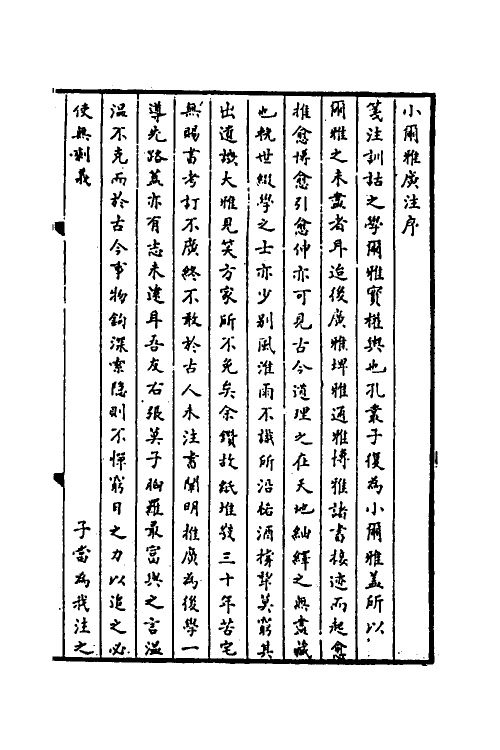 小爾雅廣注序
箋注訓詁之學爾雅實權輿也孔叢子復為小爾雅蓋所以
爾雅之未盡者耳迨後廣雅埤雅通雅博雅諸書接迹而起愈
推愈博愈引愈伸亦可見古今道理之在天地紬繹之無盡藏
也輓世綴學之士亦少别風淮雨不識所沿枯酒擇犂莫窮其
出遺譏大雅見笑方家所不免矣余鑽故紙堆幾三十年苦宅
無賜書考訂不廣終不敢於古人未注書闡明推廣為後學一
導先路蓋亦有志未逮耳吾友右張莫子胸羅最富與之言溫
溫不克而於古今事物鉤深索隱則不憚窮日之力以追之必
使無剩義　　子當為我注之